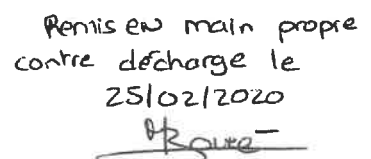 Remis en main propre
contre décharge le
25/02/2020